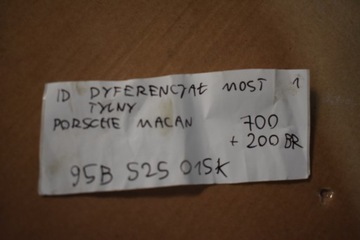 ID DYFERENCJAŁ MOST 1
TYLNY
PORSCHE MACAN 700
+ 200 BR
95B 525 015K